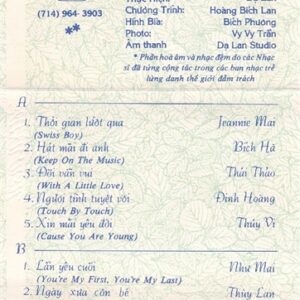 (714) 964-3903
Chương Trình: Hoàng Bích Lan
Hình Bìa: Bích Phương
Photo: Vy Vy Trần
Âm thanh Dạ Lan Studio
* Phần hoà âm và nhạc đệm do các Nhạc
sĩ đã từng cộng tác trong các ban nhạc trẻ
lừng danh thế giới đảm trách
A
1. Thời gian lướt qua Jeannie Mai
(Swiss Boy)
2. Hát mãi đi anh Bích Hà
(Keep On The Music)
3. Đời vẫn vui Thái Thảo
(With A Little Love)
4. Người tình tuyệt vời Đình Hoàng
(Touch By Touch)
5. Xin mãi yêu đời Thúy Vi
(Cause You Are Young)
B
1. Lần yêu cuối Như Mai
(You're My First, You're My Last)
2. Ngày xưa còn bé Thúy Lan